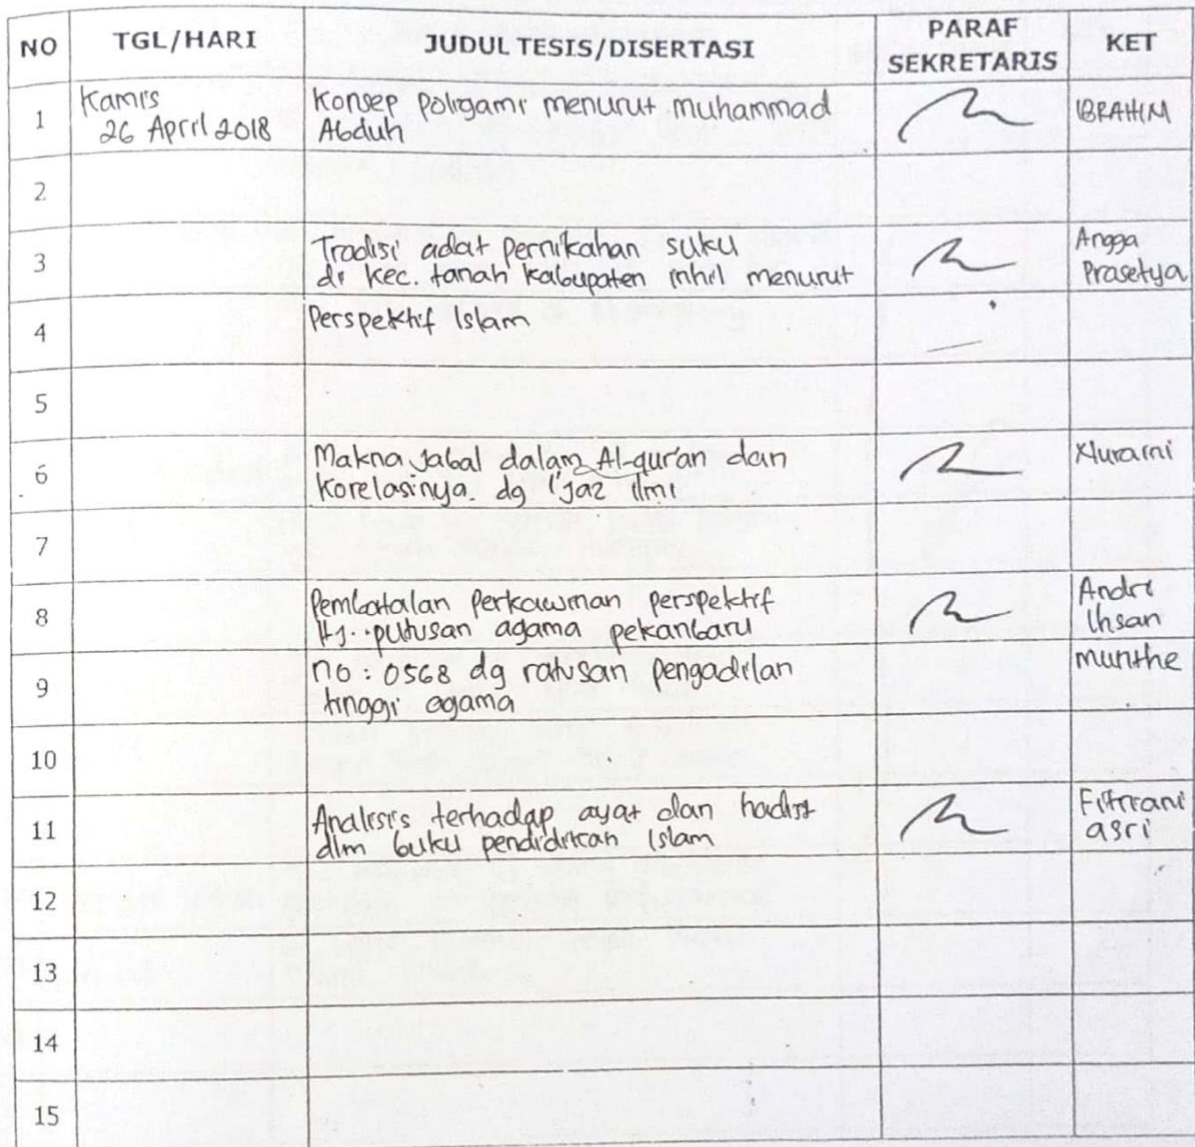 NO TGL/HARI JUDUL TESIS/DISERTASI PARAF SEKRETARIS KET
1 Kamis 26 April 2018 Konsep Poligami menurut Muhammad Abduh IBRAHIM
2
3 Tradisi adat pernikahan suku di kec. tanah kabupaten inhil menurut Angga Prasetya
4 Perspektif Islam
5
6 Makna Jabal dalam Al-qur'an dan Korelasinya dg I'jaz ilmi
7
8 Pembatalan Perkawinan perspektif putusan agama pekanbaru Andri Ihsan
9 no : 0568 dg ratusan pengadilan tinggi agama munthe
10
11 Analisis terhadap ayat dan hadist dlm buku pendidikan Islam Fitriani asri
12
13
14
15